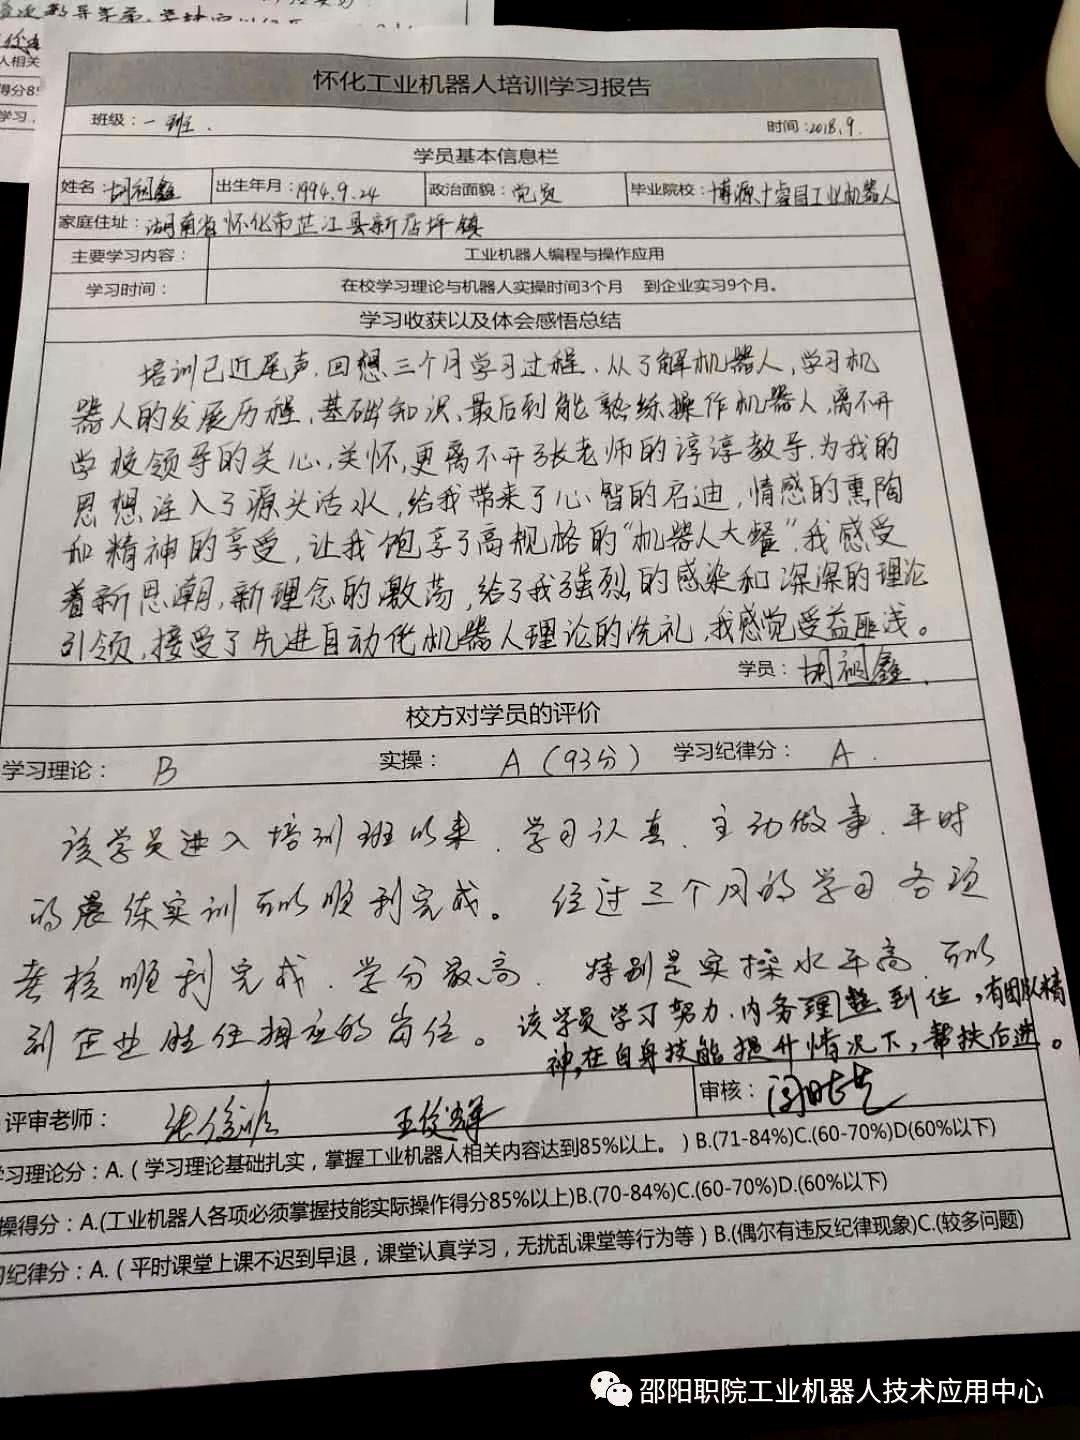 人相关
得分85
学习，
怀化工业机器人培训学习报告
班级：一班． 时间：2018.9.
学员基本信息栏
姓名：胡祠鑫 出生年月：1994.9.24 政治面貌：党员 毕业院校：博源十睿目工业机器人
家庭住址：湖南省怀化市芷江县新店坪镇
主要学习内容： 工业机器人编程与操作应用
学习时间： 在校学习理论与机器人实操时间3个月 到企业实习9个月。
学习收获以及体会感悟总结
培训已近尾声，回想三个月学习过程，从了解机器人，学习机
器人的发展历程、基础知识、最后到能熟练操作机器人，离不开
学校领导的关心，关怀，更离不开张老师的谆谆教导，为我的
思想注入了源头活水，给我带来了心智的启迪，情感的熏陶
和精神的享受，让我饱享了高规格的“机器人大餐”，我感受
着新思潮，新理念的激荡，给了我强烈的感染和深深的理论
引领，接受了先进自动化机器人理论的洗礼，我感觉受益匪浅。
学员：胡祠鑫．
校方对学员的评价
学习理论： B 实操： A（93分） 学习纪律分： A．
该学员进入培训班以来，学习认真，主动做事，平时
的晨练实训可以顺利完成。 经过三个月的学习各项
考核顺利完成，学分最高，特别是实操水平高，可以
到企业胜任相应的岗位。该学员学习努力，内务理整到位，有团队精
神，在自身技能提升情况下，帮扶后进。
评审老师： 王俊辉 审核：
学习理论分：A.（学习理论基础扎实，掌握工业机器人相关内容达到85%以上。）B.(71-84%)C.(60-70%)D(60%以下)
操得分：A.(工业机器人各项必须掌握技能实际操作得分85%以上)B.(70-84%)C.(60-70%)D.(60%以下)
习纪律分：A.（平时课堂上课不迟到早退，课堂认真学习，无扰乱课堂等行为等）B.(偶尔有违反纪律现象)C.(较多问题)
邵阳职院工业机器人技术应用中心